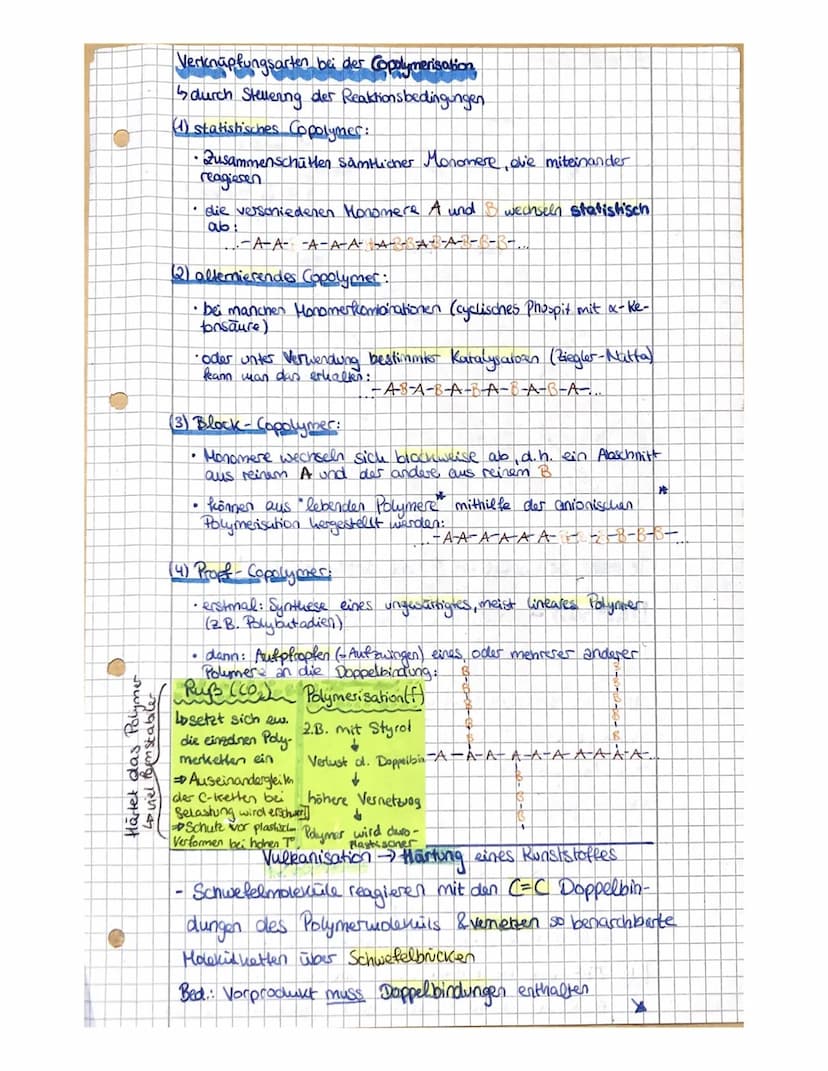 Verknüpfungsarten bei der Copolymerisation
↳ durch Steuerung der Reaktionsbedingungen
(1) statistisches Copolymer:
• Zusammenschütten sämtlicher Monomere, die miteinander
reagieren
• die verschiedenen Monomere A und B wechseln statistisch
ab:
...-A-A- -A-A-A- -A-B-B-A-B-A-B-B-B-...
(2) alternierendes Copolymer:
• bei manchen Monomerkombinationen (cyclisches Phospit mit α-Ke-
tonsäure)
• oder unter Verwendung bestimmter Katalysatoren (Ziegler-Natta)
kann man das erhalten:
...-A-B-A-B-A-B-A-B-A-B-A-...
(3) Block-Copolymer:
• Monomere wechseln sich blockweise ab, d.h. ein Abschnitt
aus reinem A und der andere aus reinem B
• können aus "lebenden Polymere"* mithilfe der anionischen *
Polymerisation hergestellt werden:
...-A-A-A-A-A-A- -B-B-B-B-...
(4) Propf-Copolymer:
• erstmal: Synthese eines ungesättigtes, meist lineares Polymer
(z.B. Polybutadien)
• dann: Aufpfropfen (→ Aufzwingen) eines, oder mehrerer anderer
Polymere an die Doppelbindung:
B B
B B
B B
B B
B B
-A-A-A-A-A-A-A-A-A-...
B
B
B
Härtet das Polymer
↳ viel formstabiler
Ruß (CO₂)
↳ setzt sich zw.
die einzelnen Poly-
merketten ein
⇒ Auseinandergleiten
der C-Ketten bei
Belastung wird erschwert
⇒ Schutz vor plastisch.
Verformen bei hohen T°
Polymerisation(f)
z.B. mit Styrol
↓
Verlust d. Doppelbin
↓
höhere Vernetzung
↓
Polymer wird duro-
plastischer
Vulkanisation → Härtung eines Kunststoffes
- Schwefelmoleküle reagieren mit den C=C Doppelbin-
dungen des Polymermoleküls & vernetzen so benarchbarte
Molekülketten über Schwefelbrücken
Bed.: Vorprodukt muss Doppelbindungen enthalten